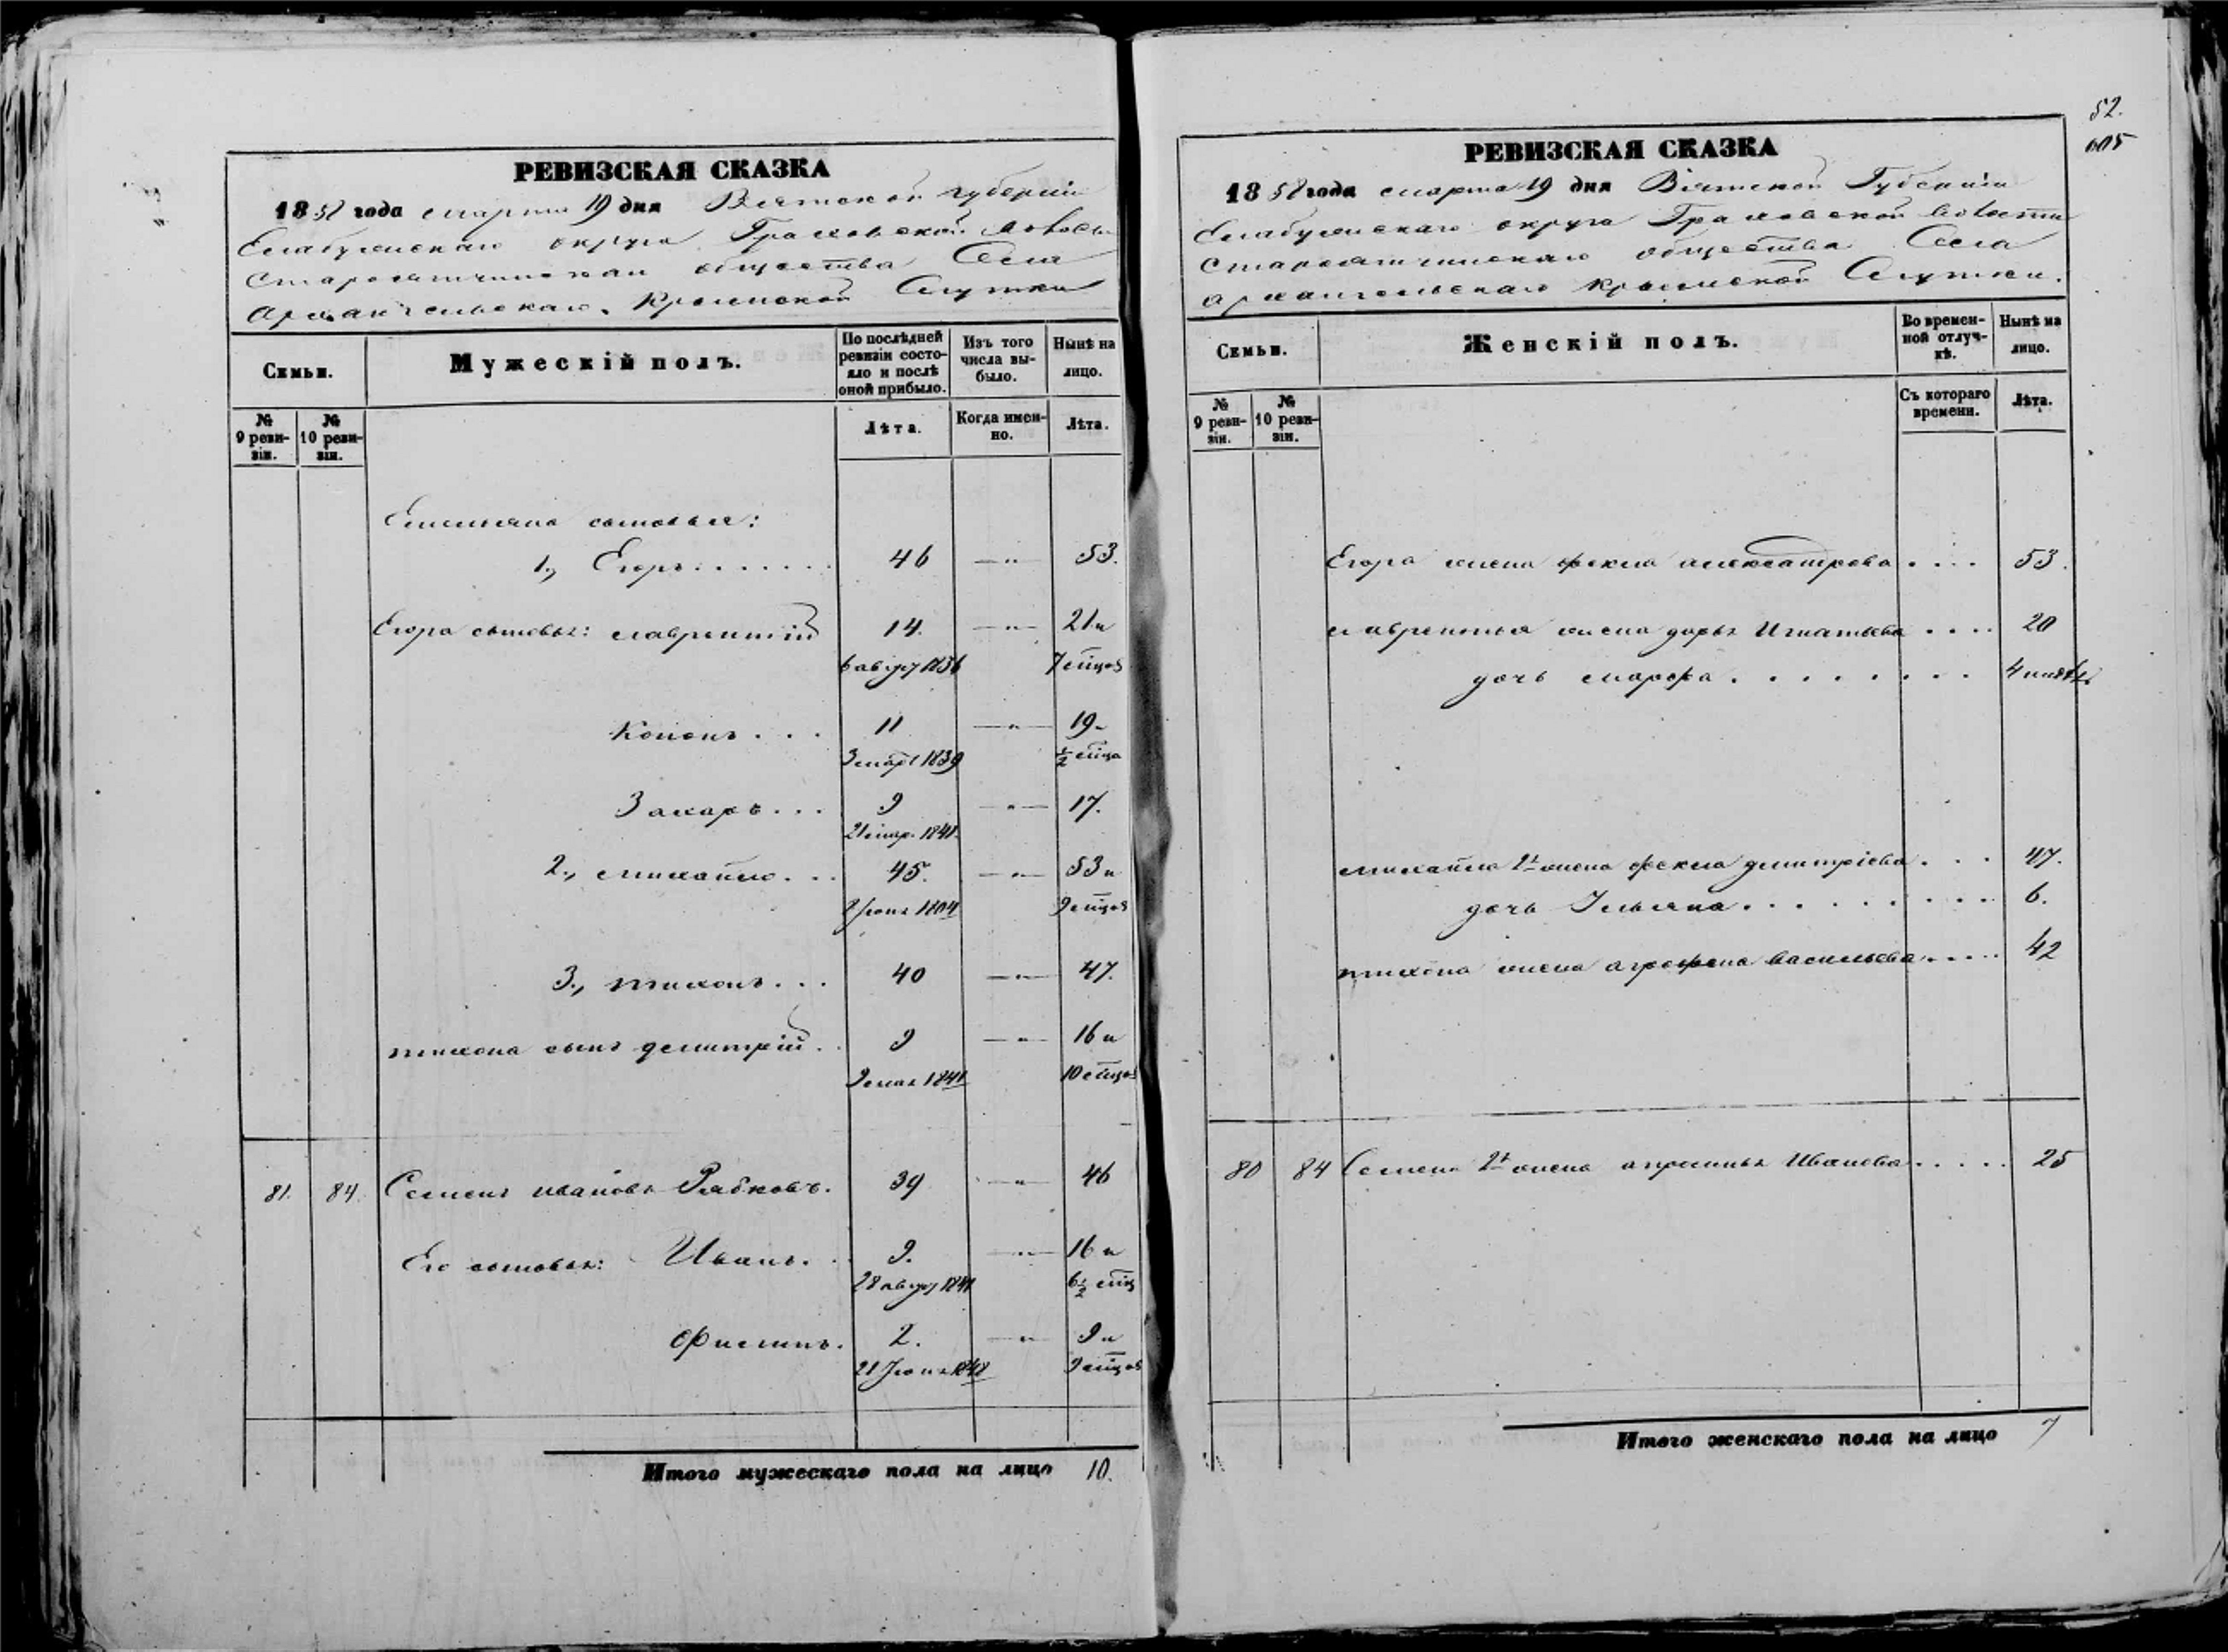 РЕВИЗСКАЯ СКАЗКА
1858 года марта 19 дня Вятской губерніи
Елабужскаго округа Граховской волости
Староятчинскаго общества Села
Архангельскаго, Крымской Слутки
Семьи.
Мужескій полъ.
По послѣдней ревизіи состояло и послѣ оной прибыло.
Изъ того числа выбыло.
Нынѣ на лицо.
№ 9 ревизіи.
№ 10 ревизіи.
Лѣта.
Когда именно.
Лѣта.
Емельяна сыновья:
1., Егоръ . . . . . . . 46 — „ — 53.
Егора сыновья: Лаврентій 14. — „ — 21 и
6 август 1836 7 мѣцов
Кононъ . . . 11 — „ — 19 и
3 март 1839 ½ мѣца
Захаръ . . . 9 — „ — 17.
21 мар. 1841.
2., Михайло . . . 45. — „ — 53 и
Іюня 1804 9 мѣцов
3., тихонъ . . . 40 — „ — 47.
тихона сынъ дмитрій . . 9 — „ — 16 и
9 мая 1841 10 мѣцов
81. 84. Семенъ ивановъ Рябковъ. 39 — „ — 46
Его сыновья: Иванъ . . 9. — „ — 16 и
28 август 1841 6½ мѣц
Филипъ. 2. — „ — 9 и
21 Іюня 1848 9 мѣцов
Итого мужескаго пола на лицо 10.
52.
605
РЕВИЗСКАЯ СКАЗКА
1858 года марта 19 дня Вятской Губерніи
Елабужскаго округа Граховской волости
Староятчинскаго общества Села
Архангельскаго Крымской Слутки.
Семьи.
Женскій полъ.
Во временной отлучкѣ.
Нынѣ на лицо.
№ 9 ревизіи.
№ 10 ревизіи.
Съ котораго времени.
Лѣта.
Егора жена фекла александрова . . . . 53.
Лаврентья жена дарья Игнатьева . . . . 20
дочь марфа . . . . . . . . 4 недѣль
михайла 2я жена фекла дмитріева . . . 47.
дочь Ульяна . . . . . . . . . 6.
тихона жена агрофена васильева . . . . . 42
80 84 Семена 2я жена Ивановна . . . . . 25
Итого женскаго пола на лицо 7